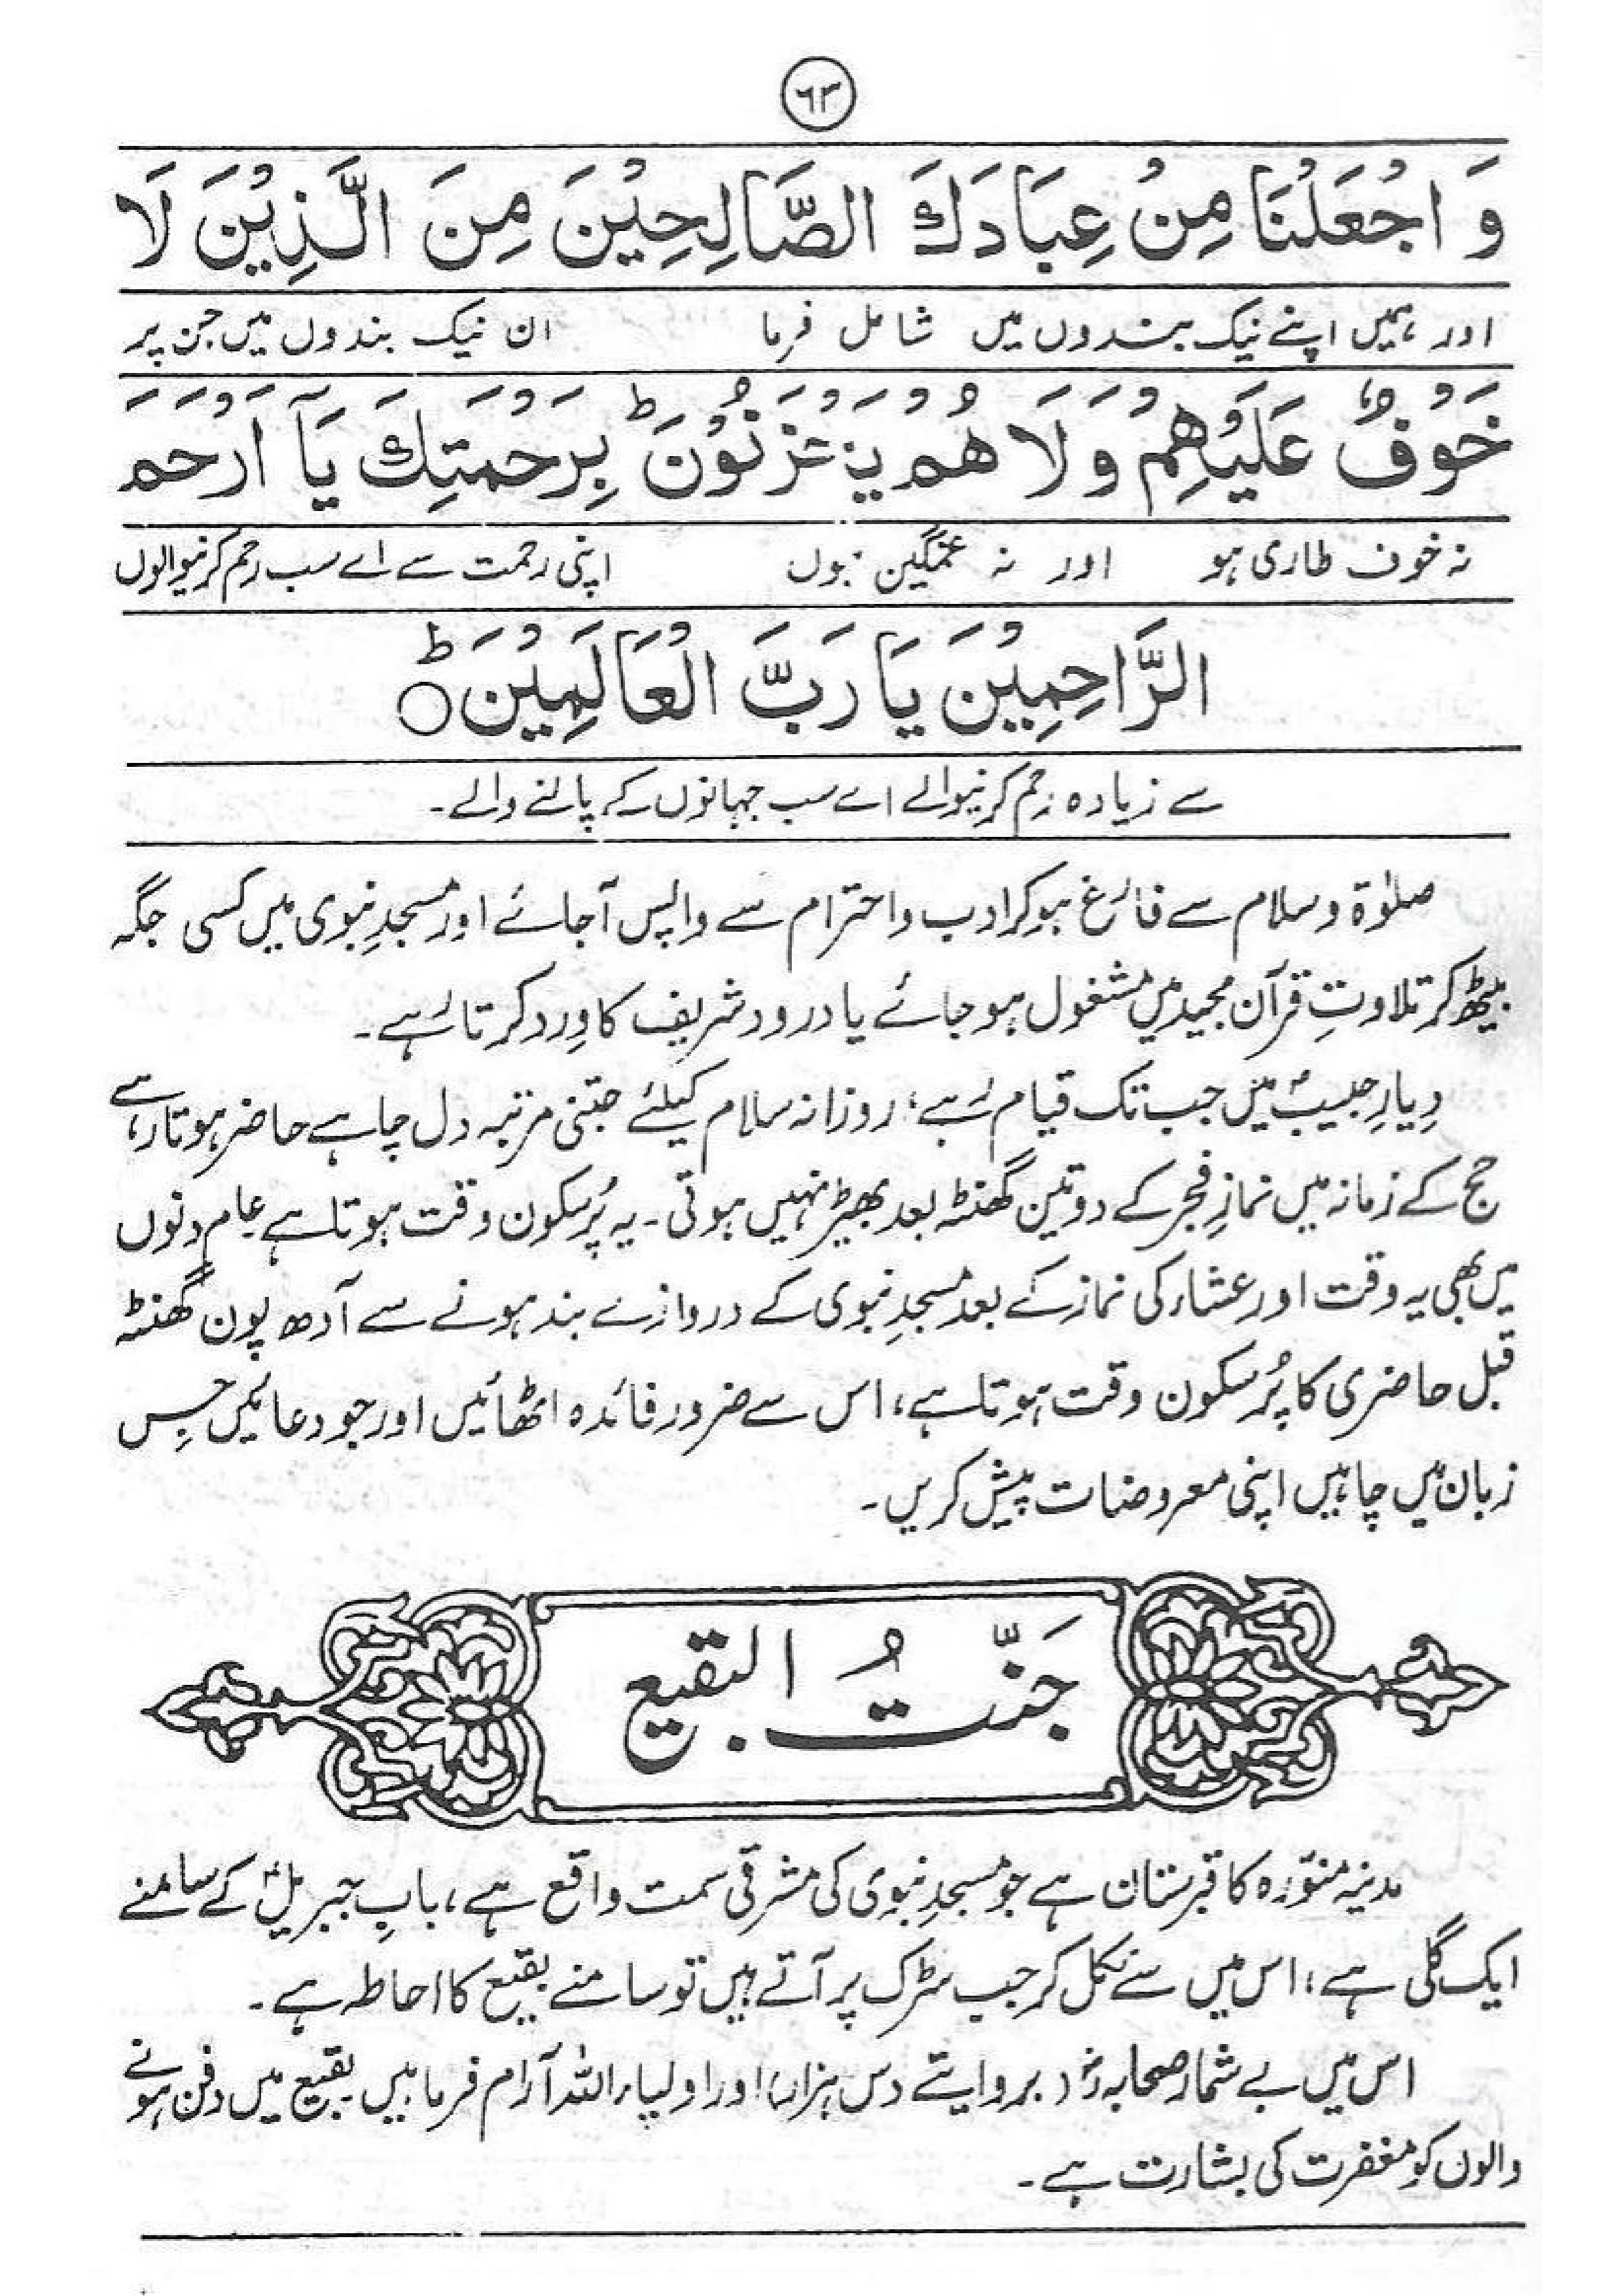 ٦٣
وَ اجْعَلْنَا مِنْ عِبَادِكَ الصَّالِحِيْنَ مِنَ الَّذِيْنَ لَا
اور ہمیں اپنے نیک بندوں میں شامل فرما ان نیک بندوں میں جن پر
خَوْفٌ عَلَيْهِمْ وَلَا هُمْ يَحْزَنُوْنَ ط بِرَحْمَتِكَ يَآ اَرْحَمَ
نہ خوف طاری ہو اور نہ غمگین ہوں اپنی رحمت سے اے سب رحم کرنیوالوں
الرَّاحِمِيْنَ يَا رَبَّ الْعَالَمِيْنَ ط ○
سے زیادہ رحم کرنیوالے اے سب جہانوں کے پالنے والے۔
صلوٰۃ وسلام سے فارغ ہوکر ادب واحترام سے واپس آجائے اور مسجدِ نبوی میں کسی جگہ
بیٹھ کر تلاوتِ قرآن مجید میں مشغول ہوجائے یا درود شریف کا وِرد کرتا رہے۔
دِیارِ حبیبؐ میں جب تک قیام رہے، روزانہ سلام کیلئے جتنی مرتبہ دل چاہے حاضر ہوتا رہے
حج کے زمانہ میں نمازِ فجر کے دو تین گھنٹہ بعد بھیڑ نہیں ہوتی۔ یہ پُرسکون وقت ہوتا ہے عام دنوں
میں بھی یہ وقت اور عشاء کی نماز کے بعد مسجدِ نبوی کے دروازے بند ہونے سے آدھ پون گھنٹہ
قبل حاضری کا پُرسکون وقت ہوتا ہے، اس سے ضرور فائدہ اٹھائیں اور جو دعائیں جس
زبان میں چاہیں اپنی معروضات پیش کریں۔
جَنّتُ البقیع
مدینہ منوّرہ کا قبرستان ہے جو مسجدِ نبوی کی مشرقی سمت واقع ہے، بابِ جبریلؑ کے سامنے
ایک گلی ہے، اس میں سے نکل کر جب سڑک پر آتے ہیں تو سامنے بقیع کا احاطہ ہے۔
اس میں بے شمار صحابہؓ (بروایتے دس ہزار) اور اولیاء اللہ آرام فرما ہیں بقیع میں دفن ہونے
والوں کو مغفرت کی بشارت ہے۔